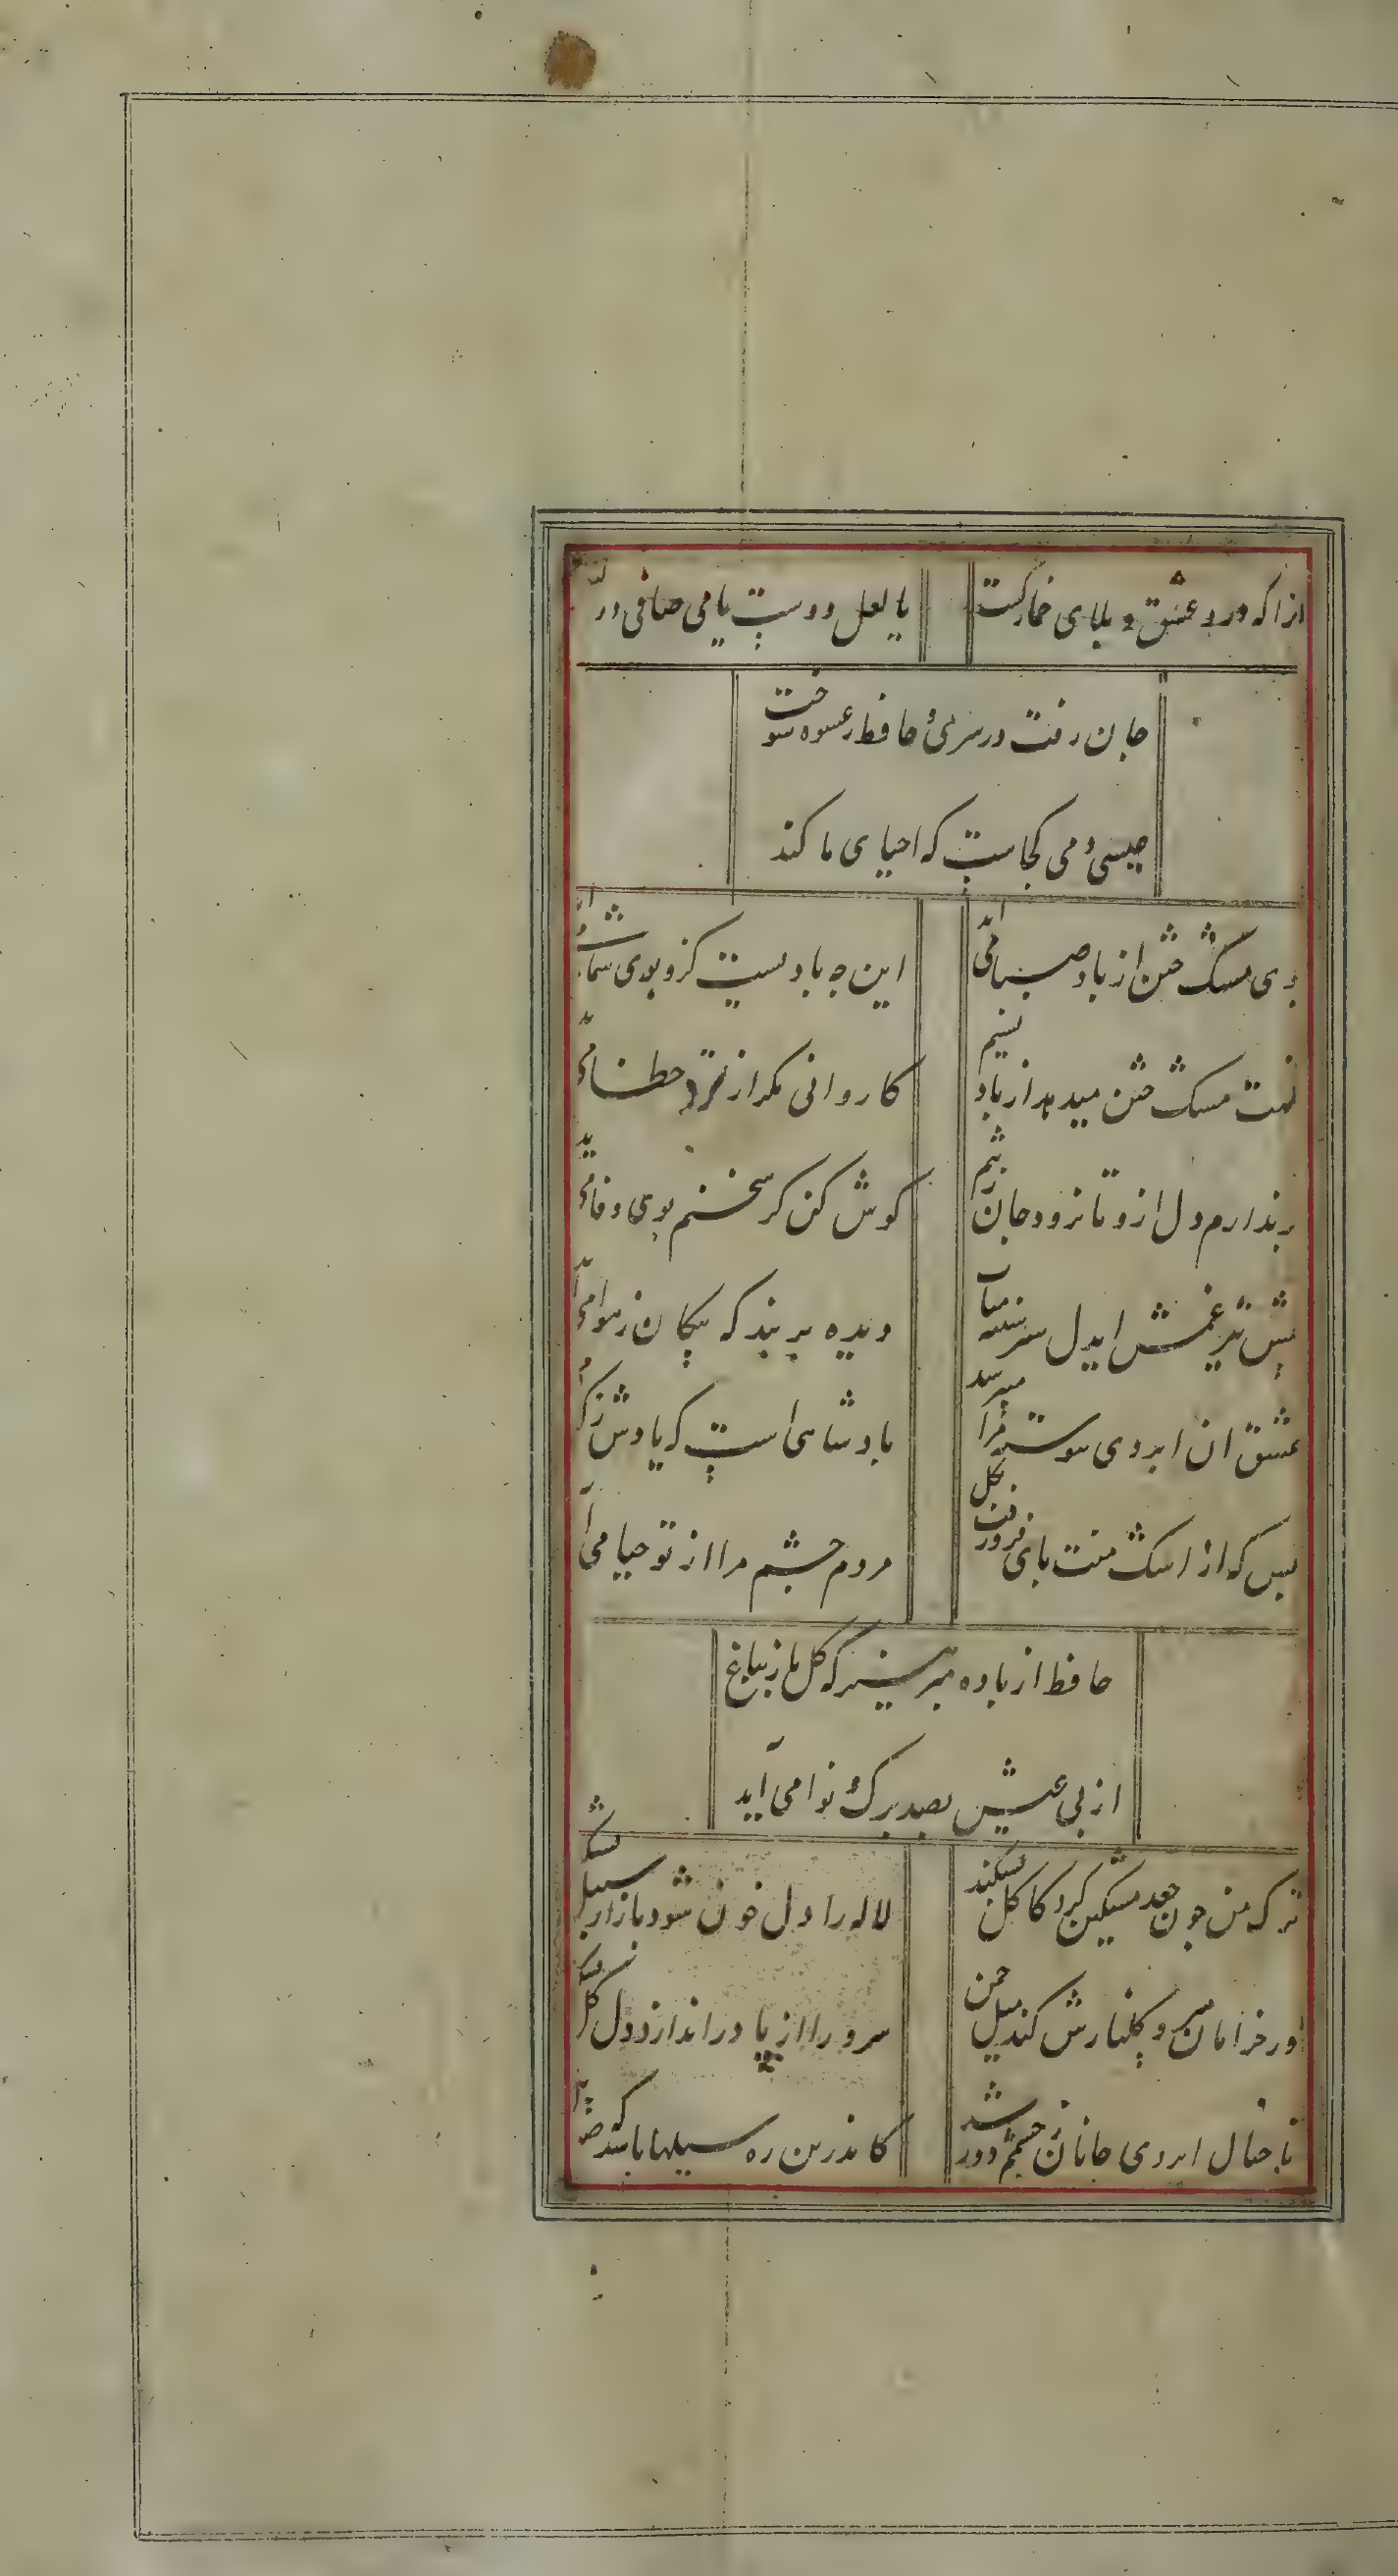 انرا که درد عشق و بلای خمار کشت
یا لعل دوست یا می صافی دوا
جان رفت در سر می و حافظ ز عشوه سوخت
عیسی دمی کجاست که احیای ما کند
بوی مشک ختن از باد صبا می آید
این چه بادیست کزو بوی شما
نکهت مشک ختن میدمد از باد نسیم
کاروانی مگر از خطا می آید
بر ندارم دل ازو تا نرود جان ز تنم
گوش کن کز سخنم بوی وفا می آید
پیش تیر غمش ایدل سپر سینه
دیده بر بند که پیکان ز هوا می آید
عشق ان ابروی مرا میرسد
پادشاهی است که یادش ز
بس که از اشک منت پای فرو رفت بگل
مردم چشم مرا از تو حیا می آ
حافظ از باده مپرهیز که گل باز بباغ
از پی عیش بصد برگ و نوا می آید
ترک من چون جعد مشکین گرد کاکل بشکند
لاله را دل خون شود بازار سنبل بشکند
ور خرامان سرو گلنارش کند میل چمن
سرو را از پا در اندازد دل گل
تا خیال ابروی جانان ز چشمم دور شد
کاندرین ره سیلها باشد که